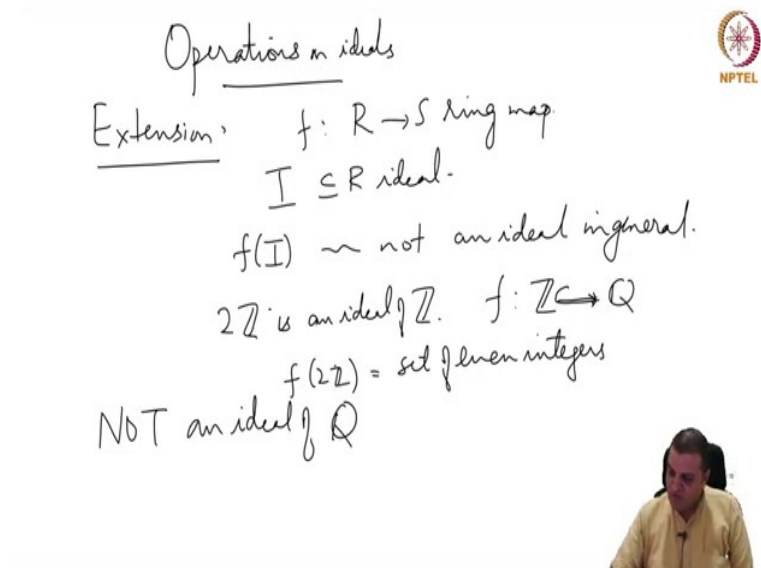 Operations on ideals
NPTEL
Extension: f: R → S ring map.
I ⊆ R ideal.
f(I) ~ not an ideal in general.
2ℤ is an ideal of ℤ. f: ℤ ↪ ℚ
f(2ℤ) = set of even integers
NOT an ideal of ℚ